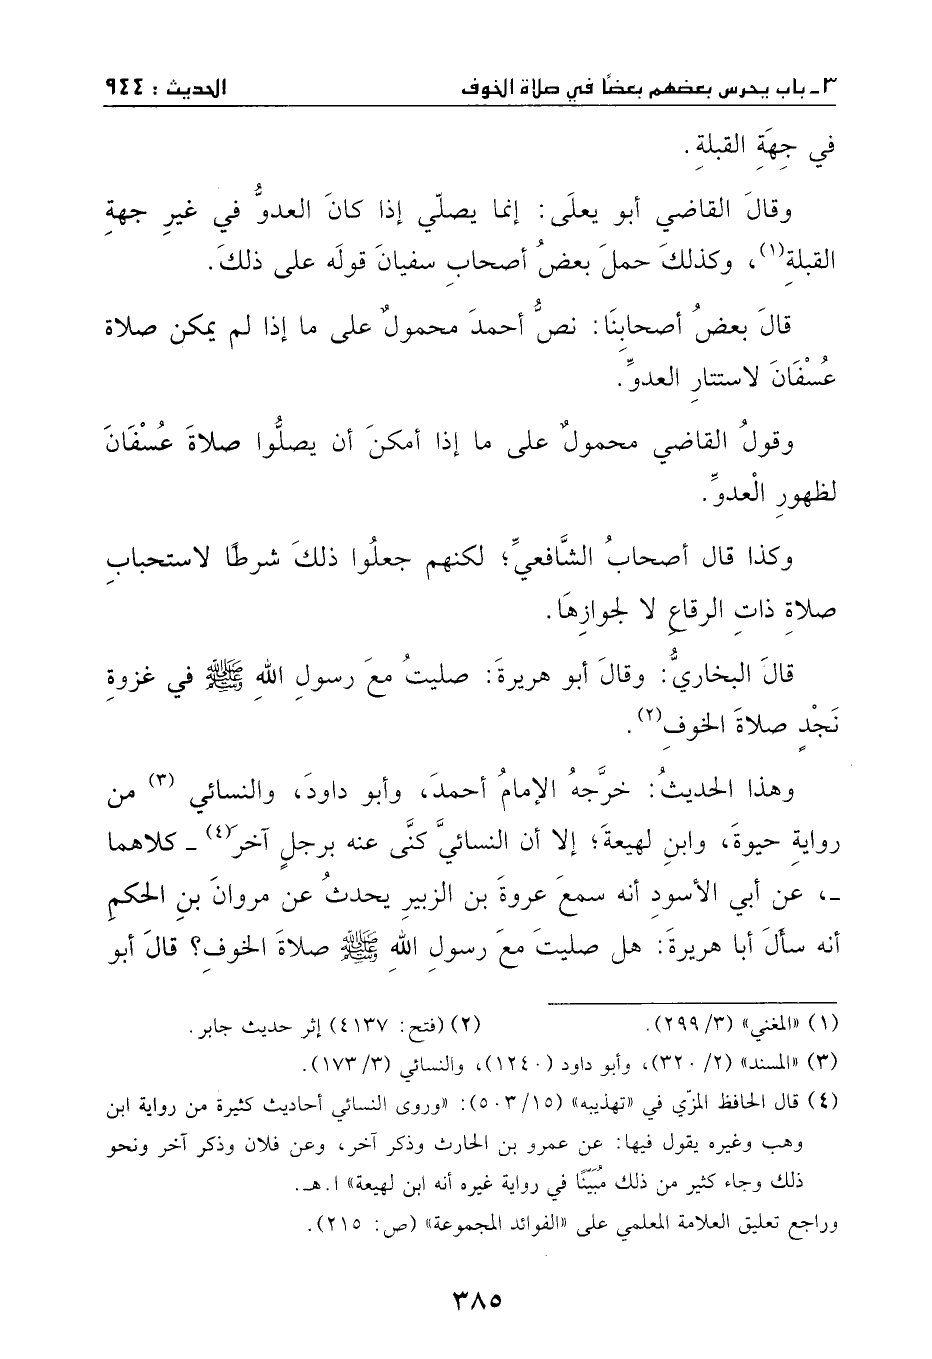 ٣ـ باب يحرس بعضهم بعضًا في صلاة الخوف
الحديث : ٩٤٤
في جِهَةِ القبلةِ .
وقالَ القاضي أبو يعلَى: إنما يصلّي إذا كانَ العدوُّ في غيرِ جهةِ
القبلةِ(١)، وكذلكَ حملَ بعضُ أصحابِ سفيانَ قولَه على ذلكَ.
قالَ بعضُ أصحابِنَا: نصُّ أحمدَ محمولٌ على ما إذا لم يمكن صلاة
عُسْفَانَ لاستتارِ العدوِّ.
وقولُ القاضي محمولٌ على ما إذا أمكنَ أن يصلُّوا صلاةَ عُسْفَانَ
لظهورِ الْعدوِّ.
وكذا قال أصحابُ الشَّافعيِّ؛ لكنهم جعلُوا ذلكَ شرطًا لاستحبابِ
صلاةِ ذاتِ الرقاعِ لا لجوازِهَا.
قالَ البخاريُّ: وقالَ أبو هريرةَ: صليتُ معَ رسولِ اللهِ ﷺ في غزوةِ
نَجْدٍ صلاةَ الخوفِ(٢).
وهذا الحديثُ: خرَّجهُ الإمامُ أحمدَ، وأبو داودَ، والنسائي (٣) من
روايةِ حيوةَ، وابنِ لهيعةَ؛ إلا أن النسائيَّ كنَّى عنه برجلٍ آخرَ(٤) ـ كلاهما
ـ، عن أبي الأسودِ أنه سمعَ عروةَ بن الزبيرِ يحدثُ عن مروانَ بنِ الحكمِ
أنه سأَلَ أبا هريرةَ: هل صليتَ معَ رسولِ اللهِ ﷺ صلاةَ الخوفِ؟ قالَ أبو
(١) «المغني» (٣/ ٢٩٩).
(٢) (فتح: ٤١٣٧) إثر حديث جابر.
(٣) «المسند» (٢/ ٣٢٠)، وأبو داود (١٢٤٠)، والنسائي (٣/ ١٧٣).
(٤) قال الحافظ المزّي في «تهذيبه» (١٥/ ٥٠٣): «وروى النسائي أحاديث كثيرة من رواية ابن
وهب وغيره يقول فيها: عن عمرو بن الحارث وذكر آخر، وعن فلان وذكر آخر ونحو
ذلك وجاء كثير من ذلك مُبَيَّنًا في رواية غيره أنه ابن لهيعة» ا.هـ.
وراجع تعليق العلامة المعلمي على «الفوائد المجموعة» (ص: ٢١٥).
٣٨٥